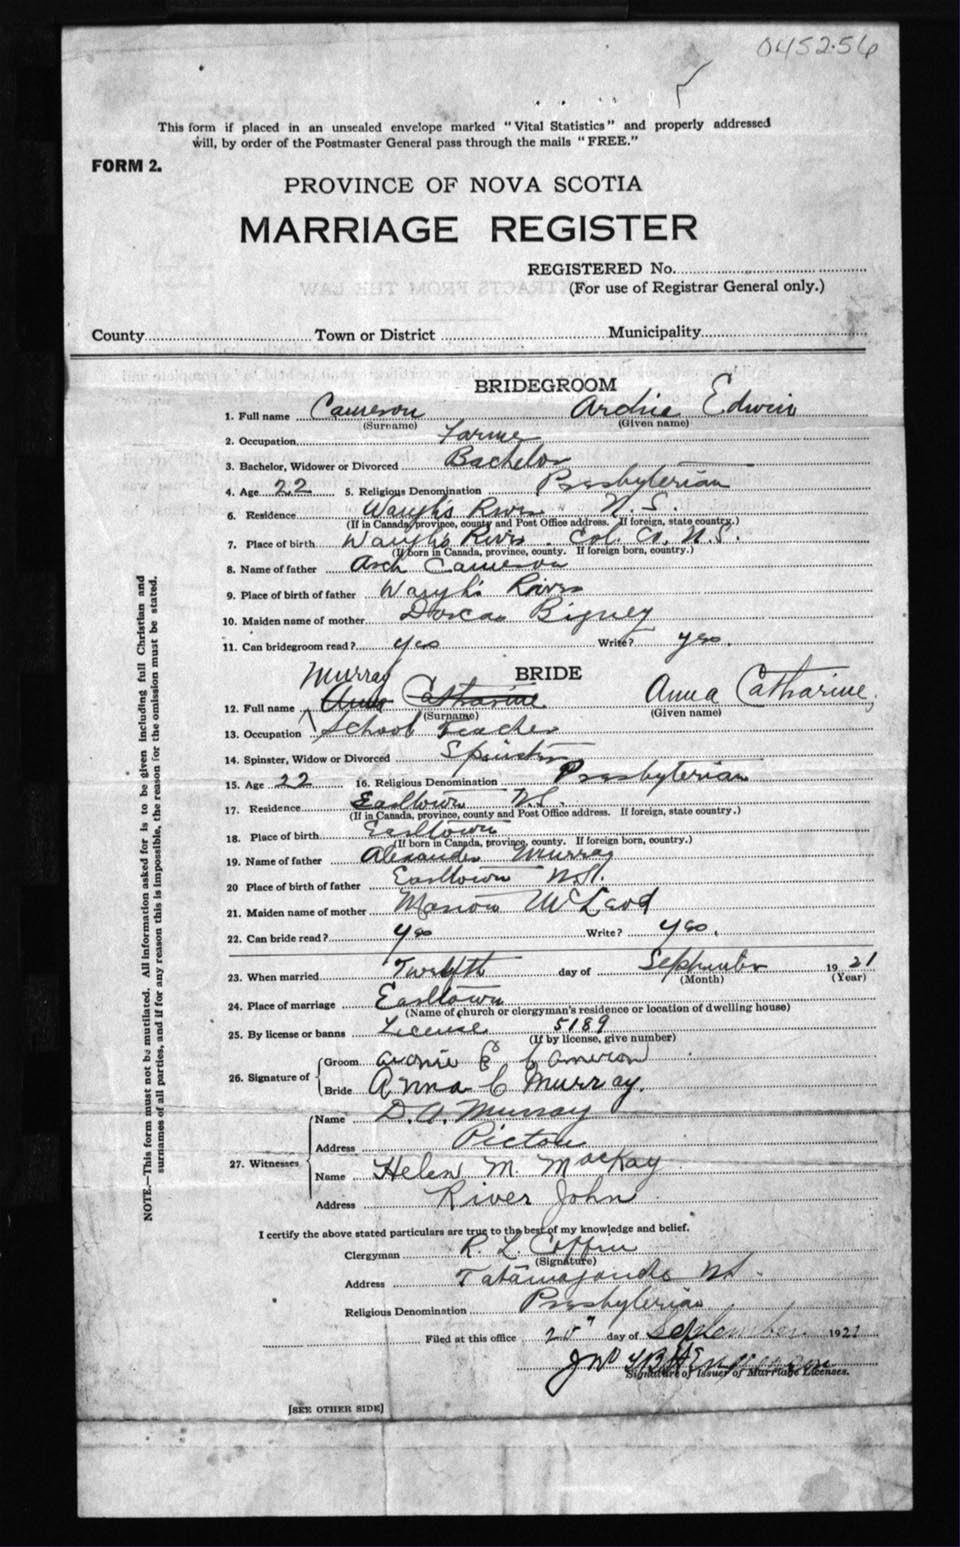 045256
This form if placed in an unsealed envelope marked "Vital Statistics" and properly addressed
will, by order of the Postmaster General pass through the mails "FREE."
FORM 2.
PROVINCE OF NOVA SCOTIA
MARRIAGE REGISTER
REGISTERED No.
(For use of Registrar General only.)
County Town or District Municipality
BRIDEGROOM
1. Full name Cameron Archie Edwin
(Surname) (Given name)
2. Occupation Farmer
3. Bachelor, Widower or Divorced Bachelor
4. Age 22 5. Religious Denomination Presbyterian
6. Residence Waugh's River N.S.
(If in Canada, province, county and Post Office address. If foreign, state country.)
7. Place of birth Waugh's River Col. Co. N.S.
(If born in Canada, province, county. If foreign born, country.)
8. Name of father Arch Cameron
9. Place of birth of father Waugh's River
10. Maiden name of mother Dorcas Bigney
11. Can bridegroom read? yes Write? yes.
BRIDE
Murray
12. Full name Anna Catharine Anna Catharine,
(Surname) (Given name)
13. Occupation School Teacher
14. Spinster, Widow or Divorced Spinster
15. Age 22 16. Religious Denomination Presbyterian
17. Residence Earltown N.S.
(If in Canada, province, county and Post Office address. If foreign, state country.)
18. Place of birth Earltown
(If born in Canada, province, county. If foreign born, country.)
19. Name of father Alexander Murray
20 Place of birth of father Earltown N.S.
21. Maiden name of mother Marion McLeod
22. Can bride read? yes Write? yes.
23. When married Twelfth day of September 1921
(Month) (Year)
24. Place of marriage Earltown
(Name of church or clergyman's residence or location of dwelling house)
25. By license or banns License 5189
(If by license, give number)
26. Signature of Groom Archie E Cameron
Bride Anna C Murray.
27. Witnesses Name D. A. Murray
Address Pictou
Name Helen M. MacKay
Address River John
I certify the above stated particulars are true to the best of my knowledge and belief.
Clergyman R. L. Coffin
(Signature)
Address Tatamagouche N.S.
Religious Denomination Presbyterian
Filed at this office 20" day of September 1921
Signature of Issuer of Marriage Licenses.
[SEE OTHER SIDE]
NOTE.—This form must not be mutilated. All information asked for is to be given including full Christian and
surnames of all parties, and if for any reason this is impossible, the reason for the omission must be stated.